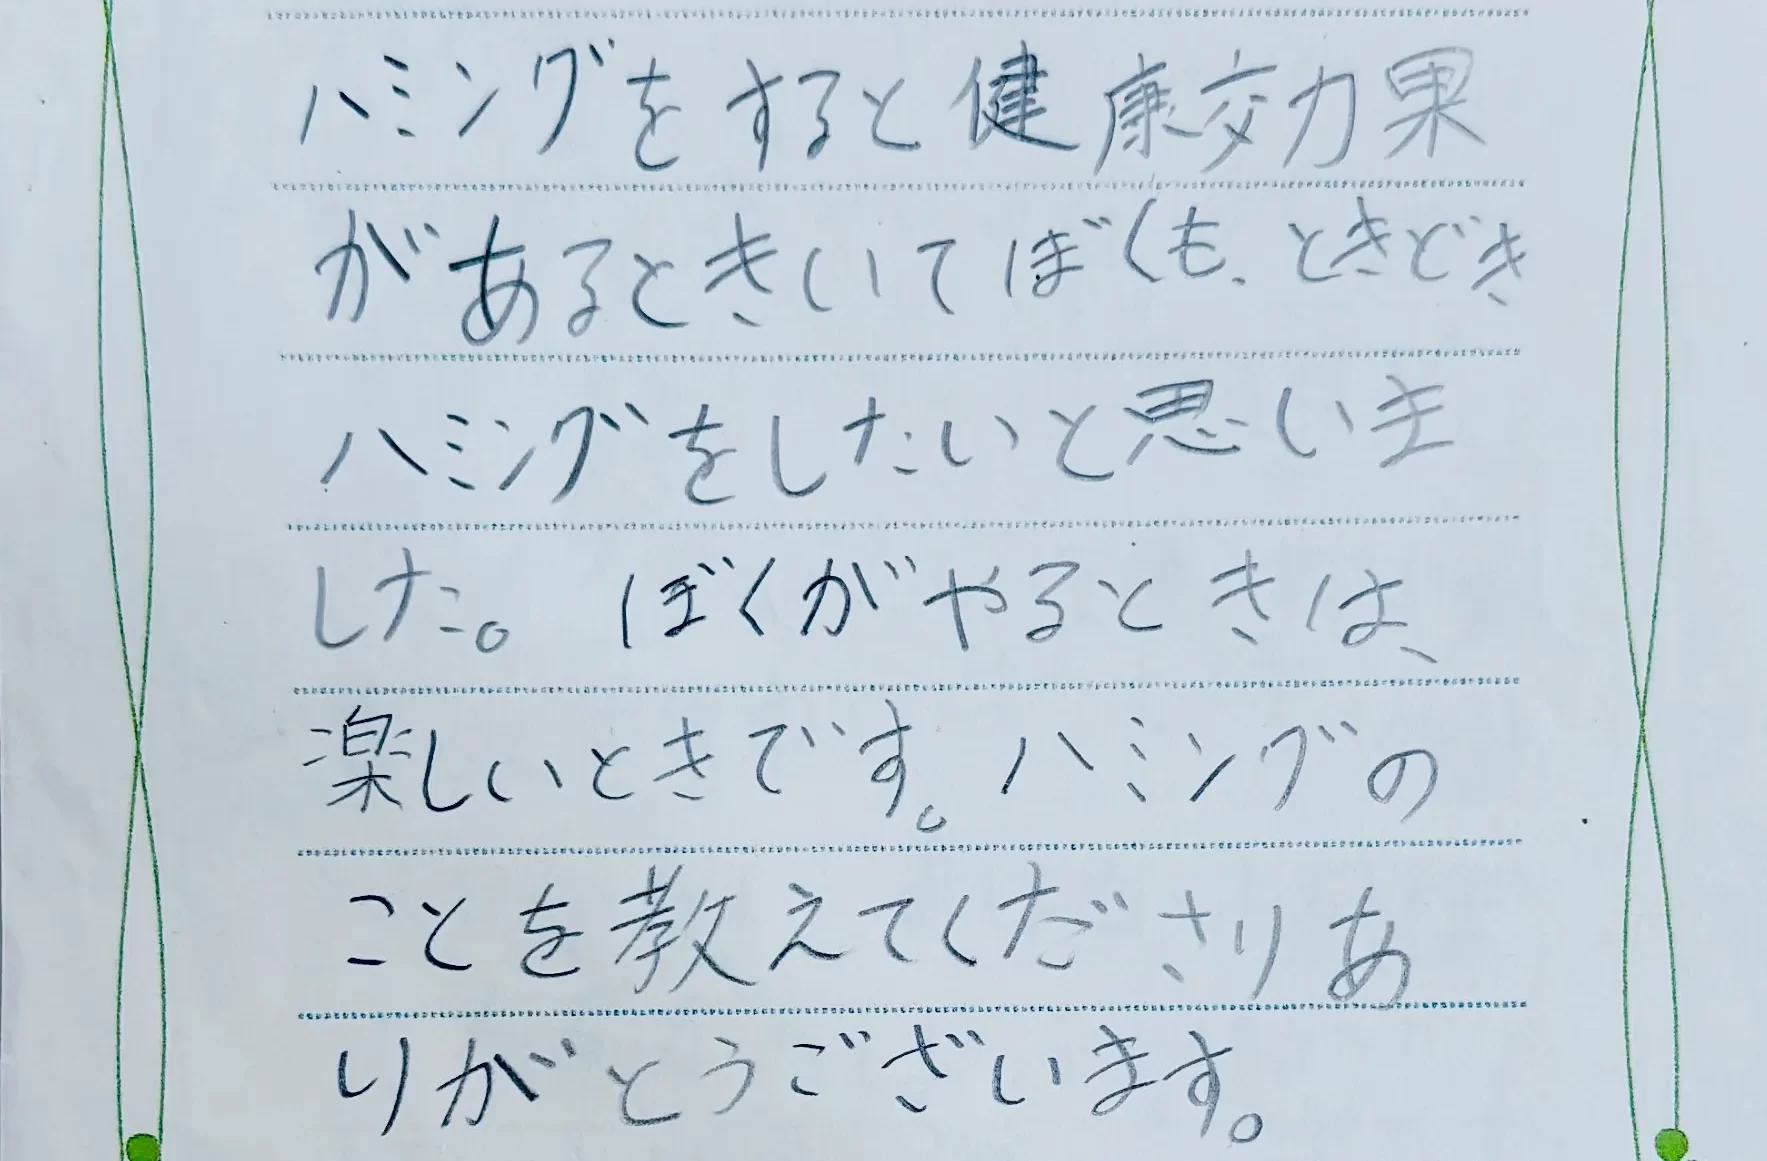 ハミングをすると健康効果
があるときいてぼくも、ときどき
ハミングをしたいと思いま
した。 ぼくがやるときは、
楽しいときです。ハミングの
ことを教えてくださりあ
りがとうございます。